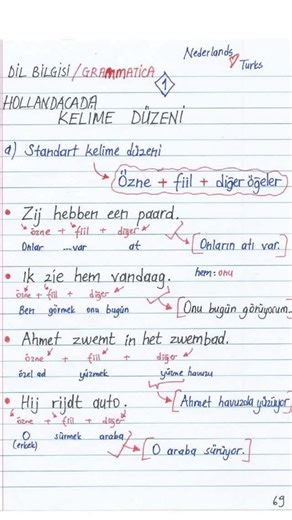 Nederlands
Turks
DİL BİLGİSİ / GRAMMATICA
1
HOLLANDACADA
KELIME DÜZENİ
a) Standart kelime düzeni
Özne + fiil + diğer öğeler
• Zij hebben een paard.
özne + fiil + diğer
Onlar ...var at [Onların atı var.]
• Ik zie hem vandaag. hem: onu
özne + fiil + diğer
Ben görmek onu bugün [Onu bugün görüyorum.]
• Ahmet zwemt in het zwembad.
özne + fiil + diğer
özel ad yüzmek yüzme havuzu
[Ahmet havuzda yüzüyor.]
• Hij rijdt auto.
özne + fiil + diğer
O sürmek araba
(erkek) [O araba sürüyor.]
69